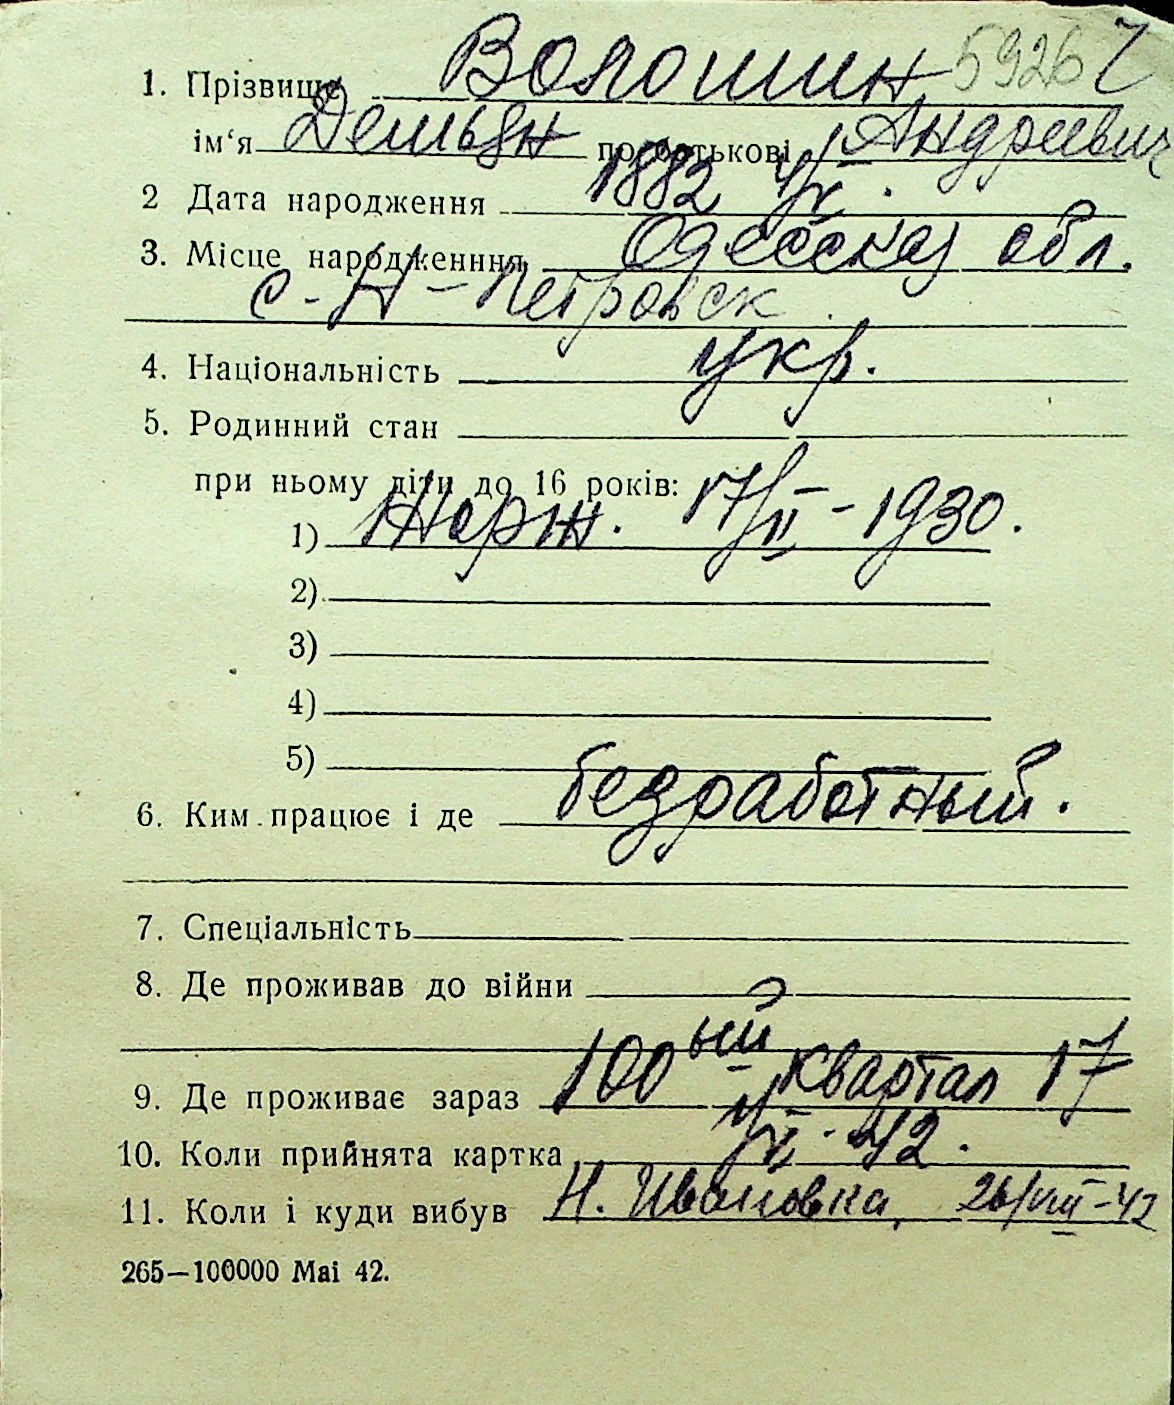 5926 7
1. Прізвище Волошин
ім‘я Демьян по батькові Андреевич
2 Дата народження 1882
3. Місце народженння Одесская обл.
с. Н-Петровск
4. Національність укр.
5. Родинний стан
при ньому діти до 16 років:
1) Жорж. 17/II - 1930.
2)
3)
4)
5)
6. Ким працює і де безработный.
7. Спеціальність
8. Де проживав до війни
9. Де проживає зараз 100ый квартал 17
10. Коли прийнята картка 42.
11. Коли і куди вибув Н. Ивановка, 26/VIII-42
265—100000 Маі 42.